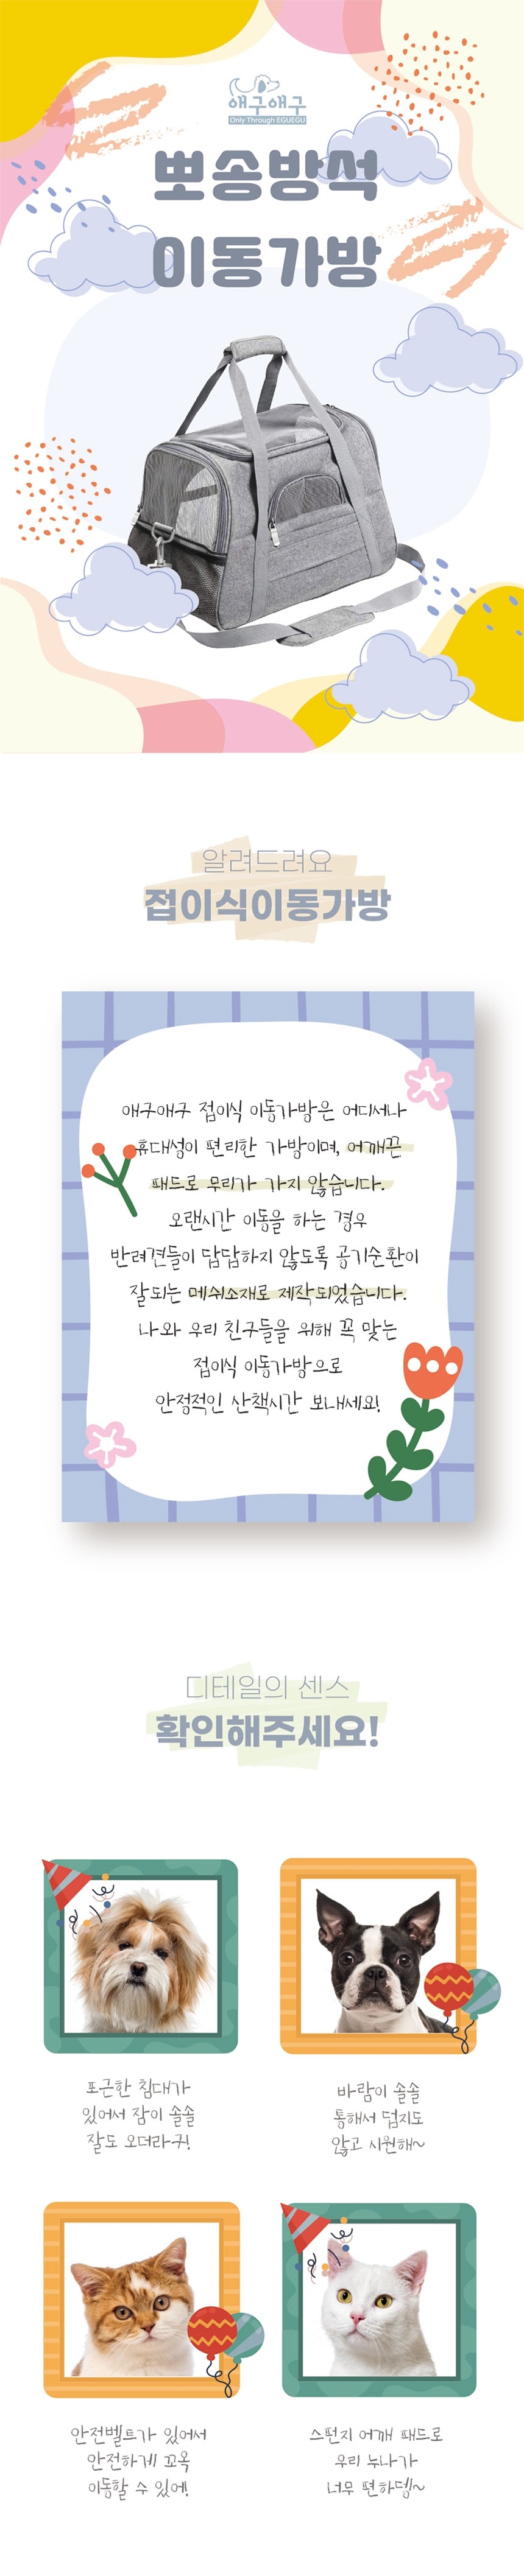 애구애구
Only Through EGUEGU
뽀송방석
이동가방
알려드려요
접이식이동가방
애구애구 접이식 이동가방은 어디서나
휴대성이 편리한 가방이며, 어깨끈
패드로 무리가 가지 않습니다.
오랜시간 이동을 하는 경우
반려견들이 답답하지 않도록 공기순환이
잘되는 메쉬소재로 제작되었습니다.
나와 우리 친구들을 위해 꼭 맞는
접이식 이동가방으로
안정적인 산책시간 보내세요!
디테일의 센스
확인해주세요!
포근한 침대가
있어서 잠이 솔솔
잘도 오더라구!
바람이 솔솔
통해서 덥지도
않고 시원해~
안전벨트가 있어서
안전하게 꼬옥
이동할 수 있어!
스펀지 어깨 패드로
우리 누나가
너무 편하뎅~